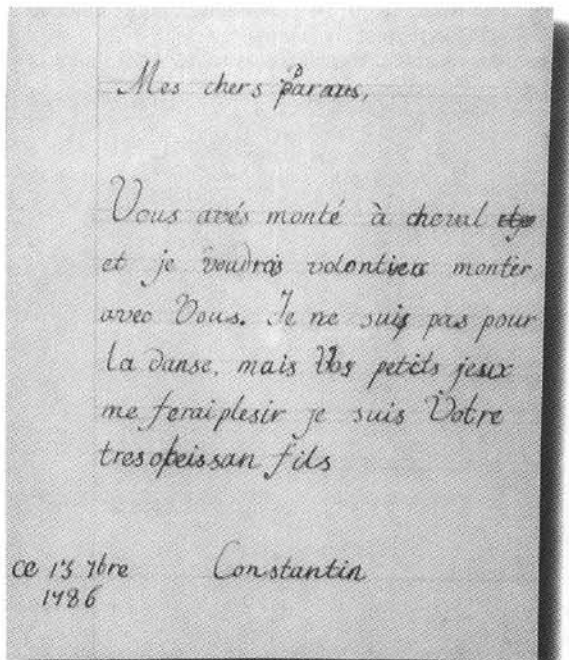 Mes chers parans,
Vous avés monté à cheval etje
et je voudrais volontiers monter
avec Vous. Je ne suis pas pour
la danse, mais Vos petits jeux
me feraiplesir je suis Votre
tresopeissan fils
ce 13 7bre Constantin
1786